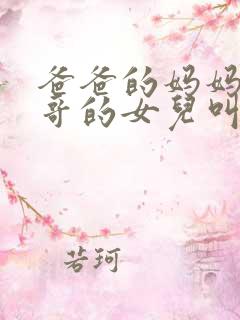 爸爸的妈妈
哥的女兒叫
若珂